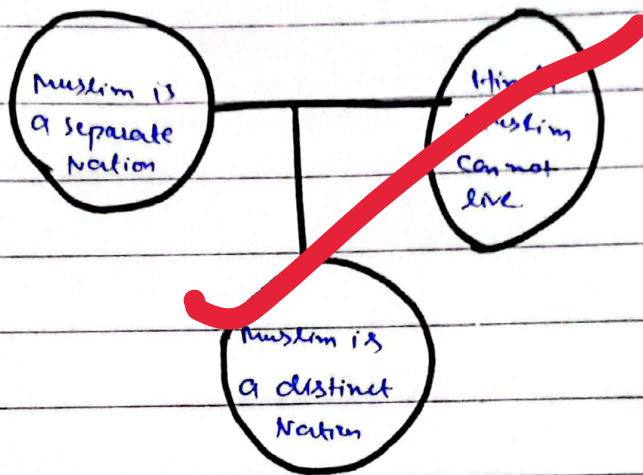 Muslim is
a separate
Nation
Muslim
cannot
live
Muslim is
a distinct
Nation